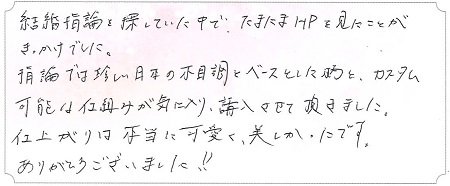 結婚指論を探していた中で、たまたまHPを見たことが
きっかけでした。
指論では珍しい日本の木目調をベースとした柄と、カスタム
可能な仕組みが気に入り、購入させて頂きました。
仕上がりは本当に可愛く、美しかったです。
ありがとうございました!!